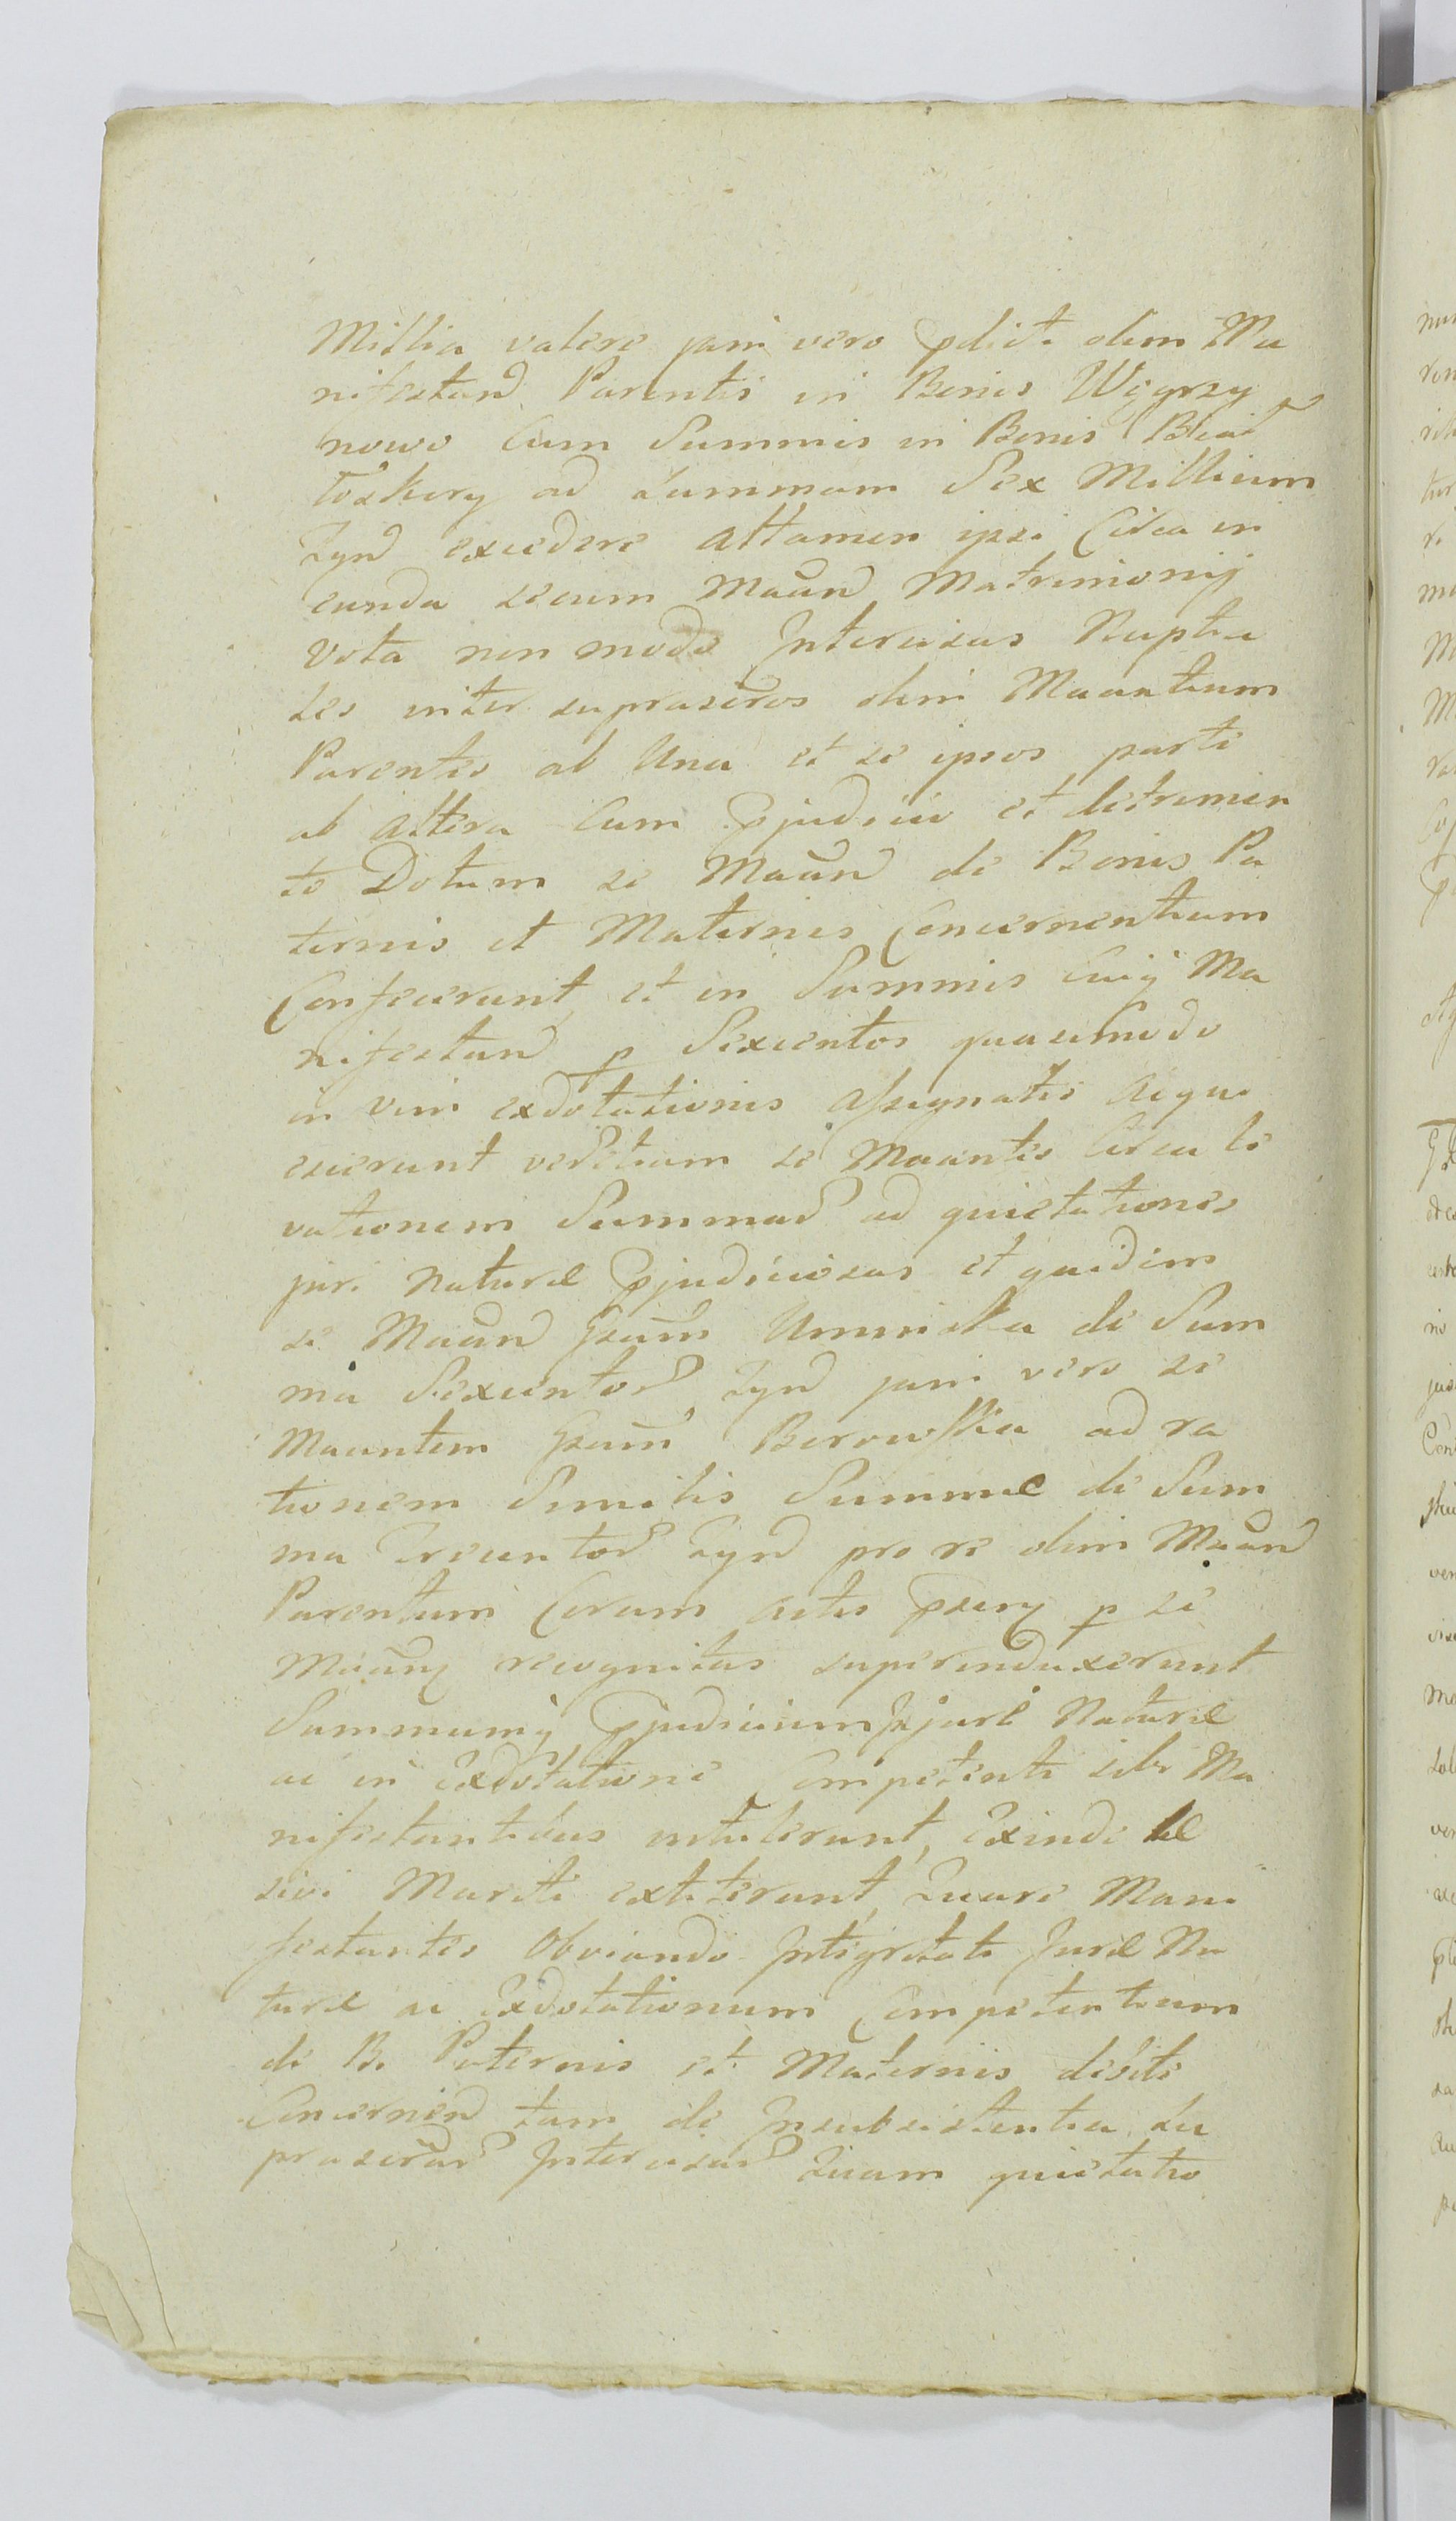 Millia valere jam vero pdicti olim Ma
nifestand Parentis in Bonis Węgrzy
nowo Cum Summis in Bonis
ad Summam Sex Millium
excedere attamen ipsi Circa in
eunda secum Maand Matrimonij
Vota non modo Intercisas Nuptia
les inter suprascros olim Maantium
Parentes ab Una et se ipsos parte
ab altera Cum Pjudicio et detrimen
to Dotum se Maand de Bonis Pa
ternis et Maternis Concernentium
Confecerunt, et in Summis Cuiq Ma
nifestand p Sexcentos quasimodo
in vim exdotationis assignatis acqui
everunt verum etiam se Maantes Circa le
vationem Summar ad quietationes
juri Naturæ Pjudiciosas et quidem
se Maand Uminska de Sum
ma Sexcentor jam vero se
Maantem Borowska ad ra
tionem Similis Summæ de Sum
ma Trecentor pro re olim Maand
Parentum Coram Actis p se
recognitas superinduxerunt
Summumq Pjudicium Naturæ
ac in Exdotatione Competenti sibi Ma
nifestantibus intulerunt, Exinde læ
sivi Mariti extiterunt, Quare Mani
festantes Obviando Integritati Juris Na
turæ ac Exdotationum Competentium
de B. Paternis et Maternis debite
Concernend tam de Insubsistentia Su
prascrar Intercisar Quam quietatio